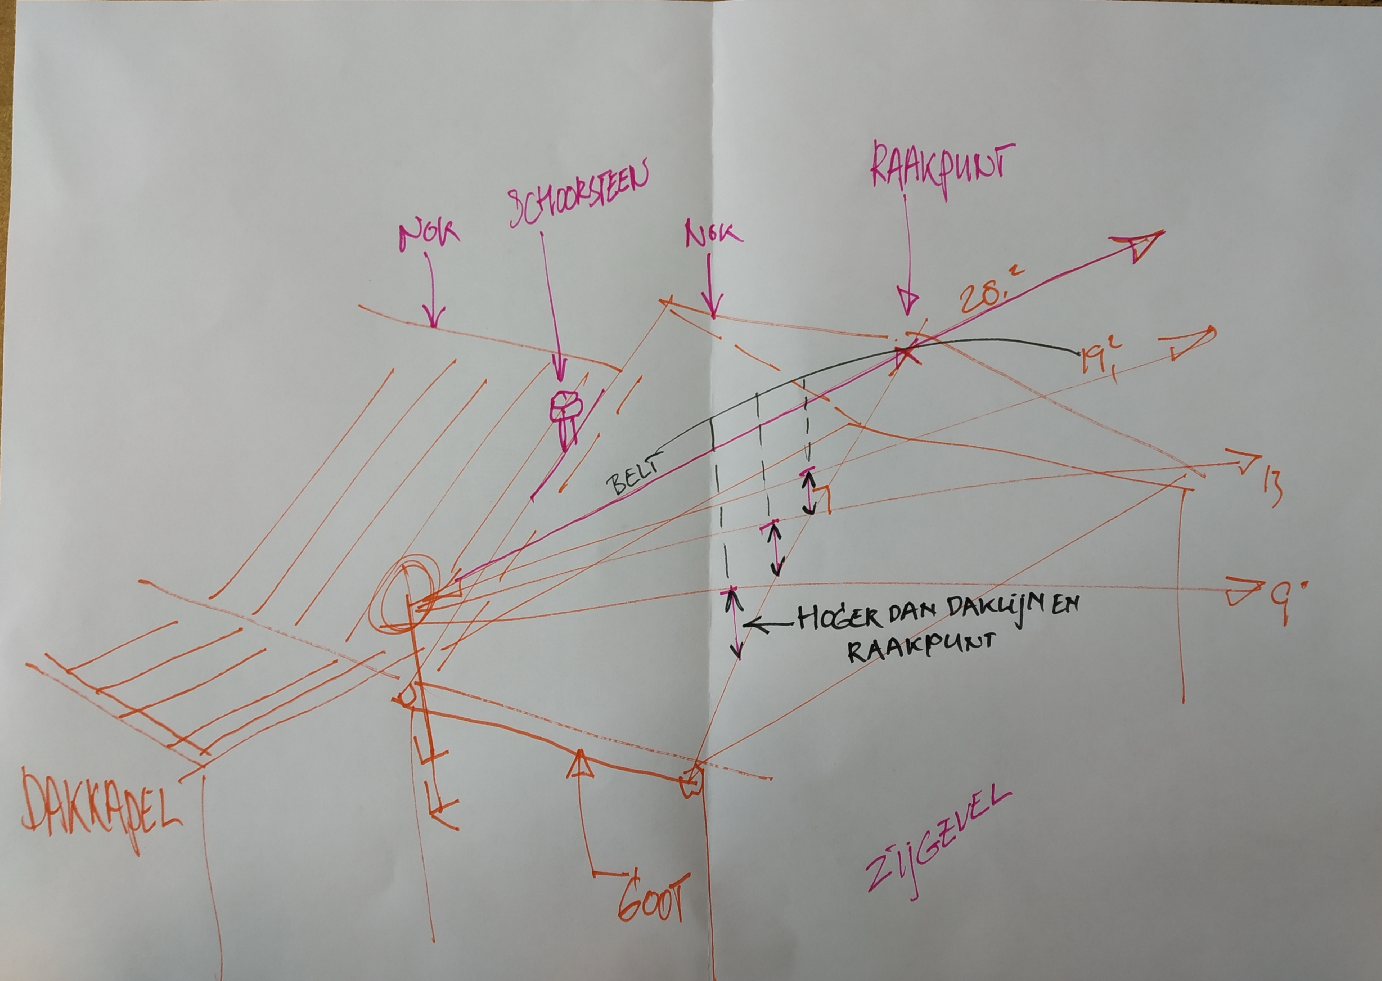 RAAKPUNT
SCHOORSTEEN
NOK
NOK
28.²
19,²
BELT
13
7
9°
HOGER DAN DAKLIJN EN
RAAKPUNT
DAKKAPEL
ZIJGEVEL
GOOT